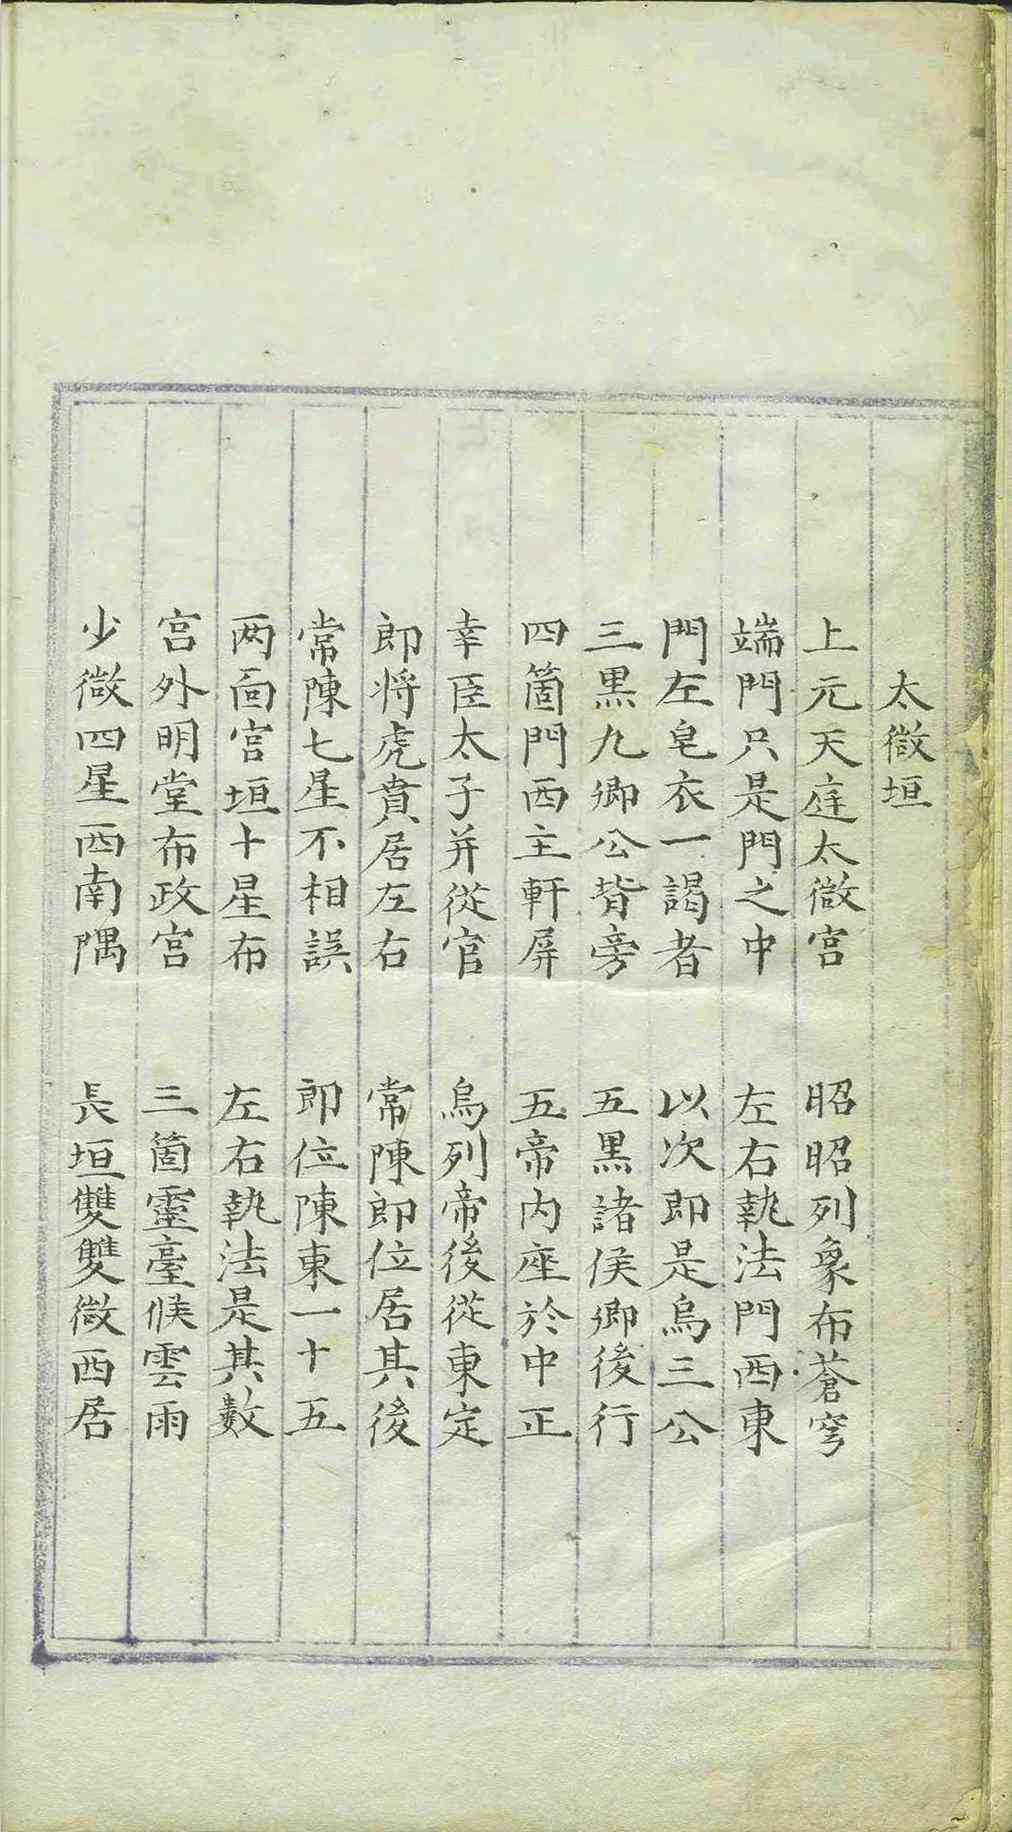 太微垣
上元天庭太微宮 昭昭列象布蒼穹
端門只是門之中 左右執法門西東
門左皂衣一謁者 以次即是烏三公
三黑九卿公背旁 五黑諸侯卿後行
四箇門西主軒屏 五帝內座於中正
幸臣太子并從官 烏列帝後從東定
郎將虎賁居左右 常陳郎位居其後
常陳七星不相誤 郎位陳東一十五
两面宮垣十星布 左右執法是其數
宮外明堂布政宮 三箇靈臺候雲雨
少微四星西南隅 長垣雙雙微西居